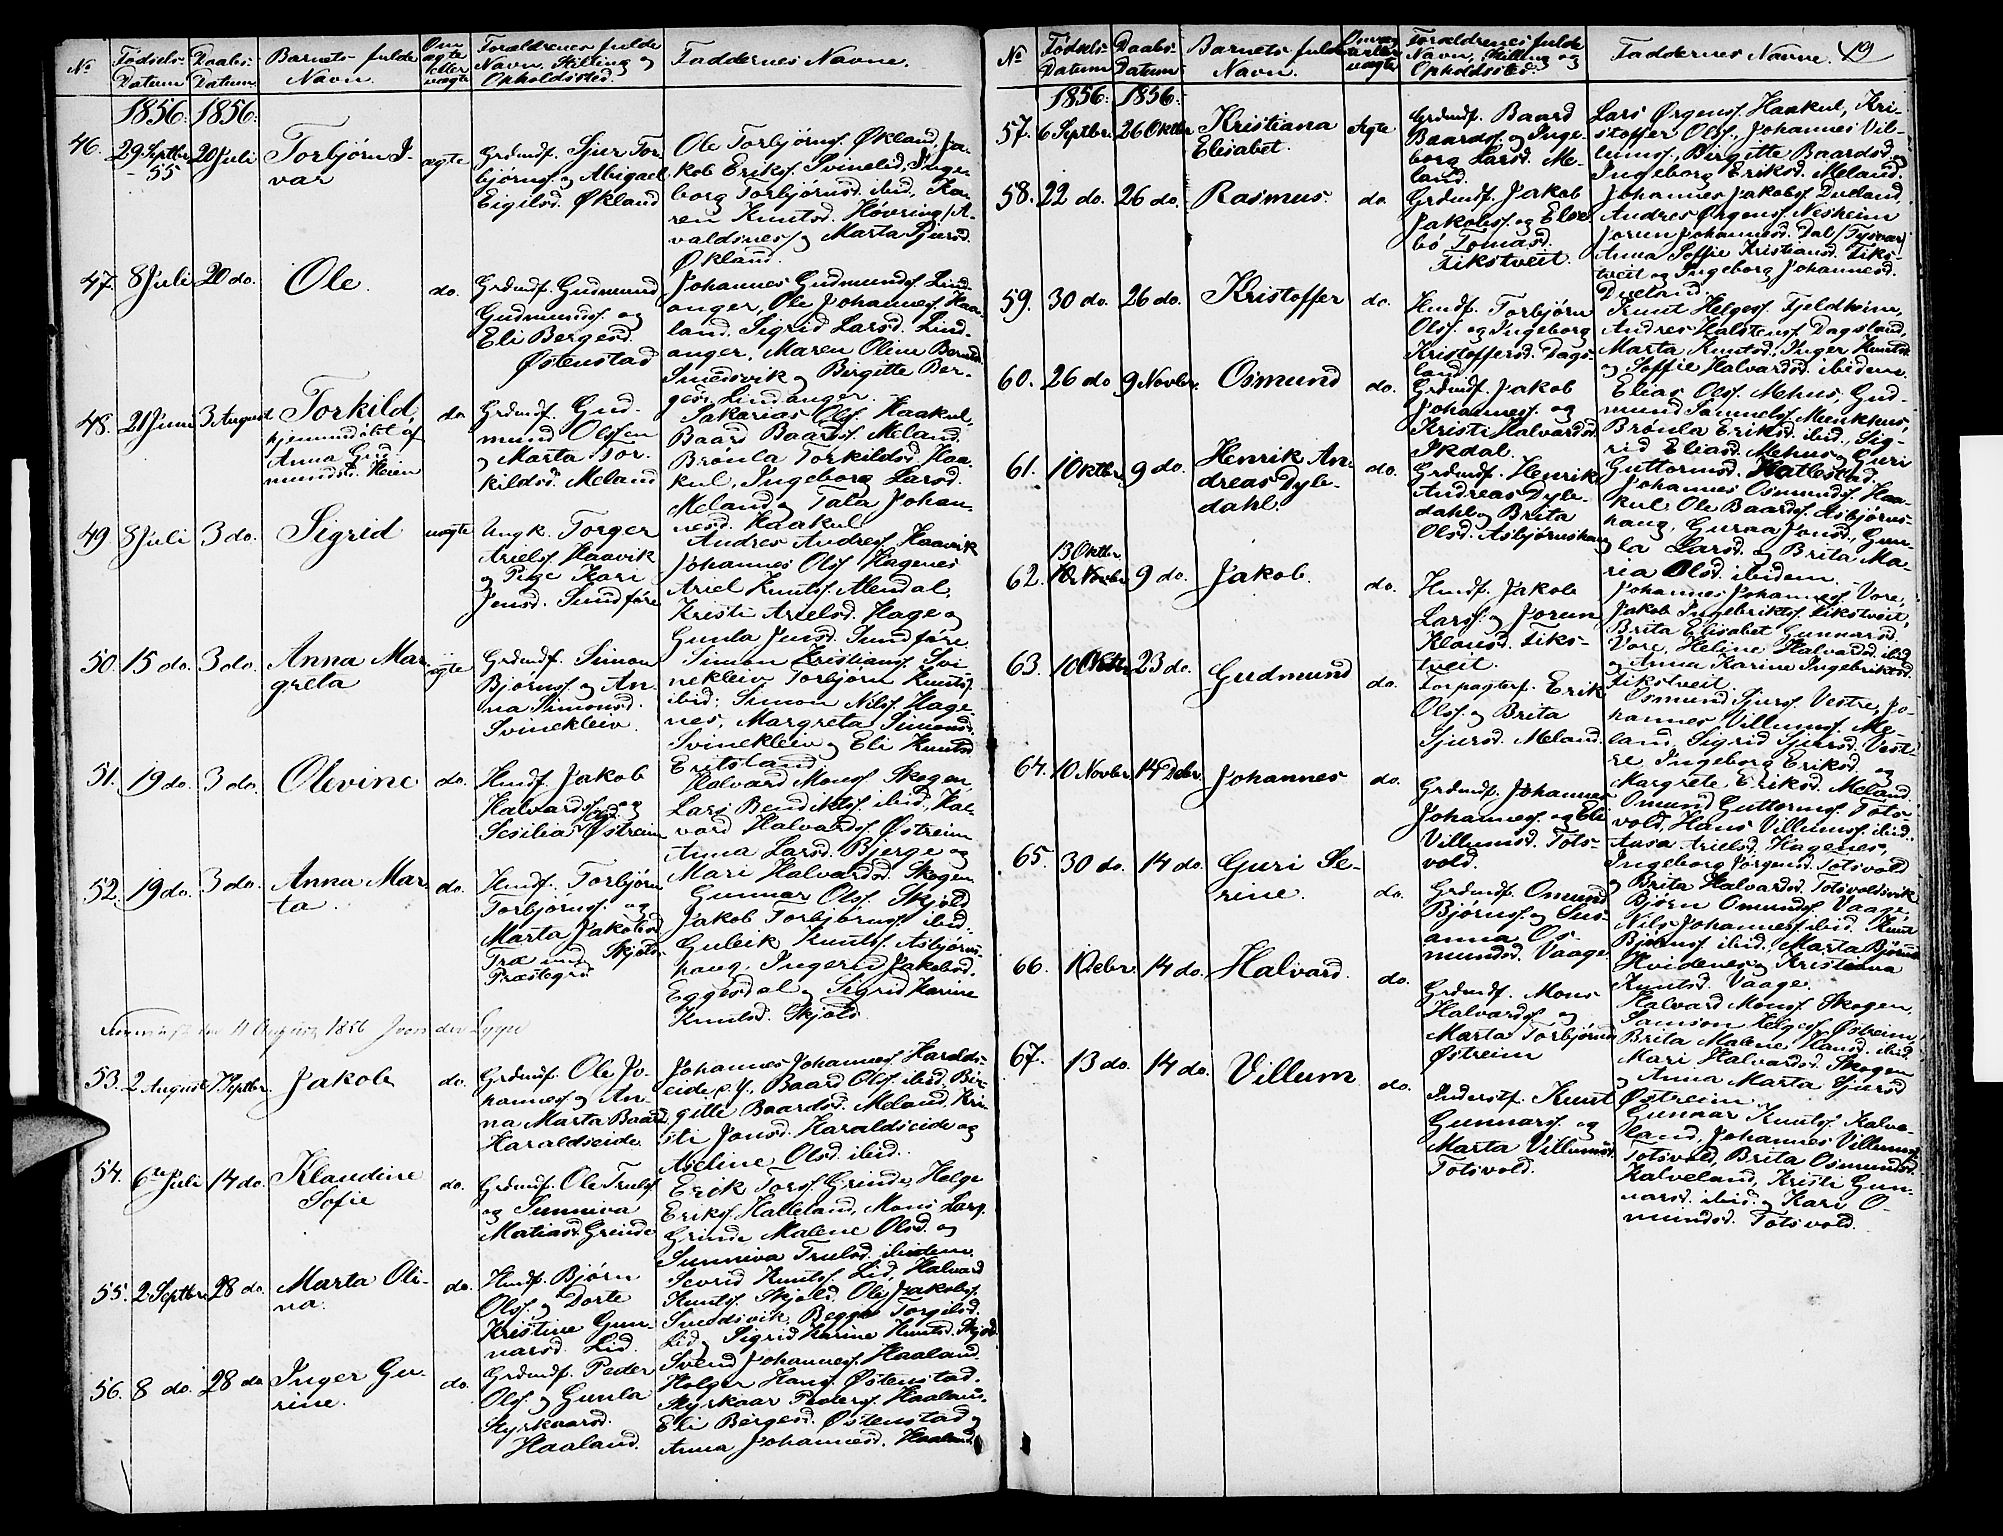 No
Fødsels-
Datum
Daabs-
Datum
Barnets fulde
Navn.
Om
ægte
eller
uægte
Forældrenes fulde
Navn, Stilling og
Opholdssted.
Faddernes Navne.
1856. 1856.
46.
29 Septbr
-55
20 Juli
Torbjørn I-
var
ægte
Grdmdf. Sjur Tor-
bjørns. og Abigael
Eigilsd. Økland
Ole Torbjørns. Økland, Ja-
kob Eriks. Svinelid, Inge-
borg Torbjørnsd. ibid, Ka-
ren Knutsd. Høvring/A-
valdsnes/ og Marta Sjursd.
Økland.
47.
8 Juli
20 do.
Ole.
do.
Grdmdf. Gudmund
Gudmunds. og
Eli Bergesd.
Østenstad
Johannes Gudmunds. Lind-
anger, Ole Johannes. Haa-
land. Sigrid Larsd. Lind-
anger, Maren Oline Berntsd.
Smedsvik og Birgitte Ber-
gesd. Lindanger.
48.
21 Juni
3 August
Torkild,
hjemmedøbt af
Anna Gud-
mundsd. Heien
do
Grdmdf. Gud-
mund Olsen
og Marta Tor-
kildsd. Meland
Sakarias Ols. Haakul,
Baard Baards. Meland.
Brønla Torkildsd. Haa-
kul, Ingeborg Larsd.
Meland og Tala Johan-
nesd. Haakul
49
8 Juli
3 do.
Sigrid
uægte
Ungk. Torger
Ariels. Haavik
og Pige Kari
Jensd. Sundføre
Andres Andres. Haavik
Johannes Ols. Hagenes
Ariel Knuts. Alendal,
Kristi Arielsd. Hage og
Gunla Jensd. Sundføre
50.
15 do.
3 do.
Anna Mar-
greta
ægte
Grdmdf. Simon
Bjørns. og An-
na Simonsd.
Svinekleiv.
Simon Kristians. Svi-
nekleiv Torbjørn Knuts.
ibid: Simon Nils. Hage-
nes, Margreta Simonsd.
Svinekleiv og Eli Knutsd.
Eritsland.
51.
19 do.
3 do.
Olevine
do.
Hmdf. Jakob
Halvards. og
Sesilia Østreim
Halvard Mons. Skogen
Lars Bendikts. ibid, Hal-
vard Halvards. Østreim
Anna Larsd. Bjerge og
Mari Halvardsd. Skogen
52.
19 do.
3 do.
Anna Mar-
ta.
do.
Hmdf. Torbjørn
Torbjørns. og
Marta Jakobsd.
Træ und. Skjold
Præstegrd
Gunnar Ols. Skjold
Jakob Torbjørns. ibid.
Guleik Knuts. Asbjørns-
haug, Ingerid Jakobsd.
Eggesdal og Sigrid Karine
Knutsd. Skjold
11 August 1856
53.
2 August
7 Septbr.
Jakob
do.
Grdmdf. Ole Jo-
hannes. og An-
na Marta Baard
Haraldseide.
Johannes Johannes. Haralds-
eide, Baard Ols. ibid. Bir-
gitte Baardsd. Meland, Kri-
sti Jonsd. Haraldseide og
Aseline Olsd. ibid.
54.
6te Juli
14 do.
Klaudine
Sofie
do.
Grdmdf. Ole Truls.
og Sunniva
Matiasd. Grinde
Erik Tors. Grinde, Helge
Eriks. Halleland, Mons Lars.
Grinde Malene Olsd. og
Sunniva Trulsd. ibidem.
55.
2 Septbr.
28 do.
Marta Oli-
na.
do.
Hmdf. Bjørn
Ols. og Dorte
Kristine Gun-
narsd. Lid.
Sevrid Knuts. Lid, Halvard
Knuts. Skjold. Ole Jakobs.
Smedsvik, Begga Torgilsd.
Lid og Sigrid Karine Knutsd. Skjold.
56.
8 do.
28 do
Inger Gu-
rine.
do.
Grdmdf. Peder
Ols. og Gunla
Styrkaarsd.
Haaland.
Svend Johannes. Haaland.
Holger Hans. Østenstad.
Styrkaar Peders. Haaland.
Eli Bergesd. Østenstad og
Anna Johannesd. Haaland.
No
Fødsels-
Datum
Daabs-
Datum
Barnets fulde
Navn.
Forældrenes fulde
Navn, Stilling og
Opholdssted.
Faddernes Navne.
19
1856. 1856.
57.
6 Septbr.
26 Oktbr
Kristiana
Elisabet.
Ægte
Grdmdf. Baard
Baards. og Inge-
borg Larsd. Me-
land.
Lars Ørgens. Haakul, Kri-
stoffer Ols., Johannes Vil-
lums., Birgitte Baardsd. og
Ingeborg Eriksd. Meland.
58.
22 do.
26 do.
Rasmus.
do.
Grdmdf. Jakob
Jakobs. og Else-
bo Tomasd.
Fikstveit.
Johannes Jakobs. Dueland,
Andres Ørgens. Nesheim
Jorun Johannesd. Dal /Tysvær/
Anna Soffie Kristiansd. Fiks-
tveit og Ingeborg Johannesd.
Dueland.
59.
30 do.
26 do.
Kristoffer
do.
Hmdf. Torbjørn
Ols. og Ingeborg
Kristoffersd. Dags-
land
Knut Helges. Fjeldheim,
Andres Halstens. Dagsland,
Marta Knutsd., Inger Knutsd.
og Soffie Halvardsd. ibidem.
60.
26 do
9 Novbr.
Osmund
do.
Grdmdf. Jakob
Johannes. og
Kristi Halvardsd.
Ikdal.
Elias Ols. Mehus, Gud-
mund Samuels. Munkhus,
Brønla Eriksd. ibid, Sig-
rid Eliasd. Mehus og Guri
Guttormsd. Hatlestad.
61.
1 Oktbr.
9 do.
Henrik An-
dreas Dyle-
dahl.
do.
Grdmdf. Henrik
Andreas Dyle-
dahl og Brita
Olsd. Asbjørnshaug
Johannes Osmunds. Haa-
kul Ole Baards. Asbjørns-
haug, Guraa Jonsd., Gun-
la Larsd. og Brita Ma-
ria Olsd. ibidem.
62.
13 Oktbr
9 do.
Jakob.
do.
Hmdf. Jakob
Lars. og Jorun
Klausd. Fiks-
tveit.
Johannes Johannes. Vore,
Jakob Ingebrikts. Fikstveit,
Brita Elisabet Gunnarsd.
Vore, Heline Halvardsd. ibid
og Anna Karine Ingebriktsd.
Fikstveit.
63.
10 Oktbr.
23 do.
Gudmund
do.
Forpagterf. Erik
Ols. og Brita
Sjursd. Meland.
Osmund Sjurs. Vestre, Jo-
hannes Villums. Me-
land, Sigrid Sjursd. Vest-
re, Ingeborg Eriksd. og
Margrete Eriksd. Meland.
64.
10 Novbr.
14 Debr.
Johannes
do.
Grdmdf. Johannes
Johannes. og Eli
Villumsd. Tots-
vold.
Omund Guttorms. Tots-
vold, Hans Villums. ibid.
Aasa Arielsd. Hagenes,
Ingeborg Jørgensd. Totsvold
og Brita Halvardsd. Totsvoldsvik
65.
30 do.
14 do.
Guri Se-
rine.
do.
Grdmdf. Omund
Bjørns. og Sus-
anna Os-
mundsd. Vaage
Bjørn Omunds. Vaage,
Nils Johannes. ibid. Knut
Bjørns. ibid. Marta Bjørnsd.
Hvidenes og Kristiana
Knutsd. Vaage.
66.
1 Debr.
14 do.
Halvard.
do.
Grdmdf. Mons
Halvards. og
Marta Torbjørnsd.
Østreim
Halvard Mons. Skogen,
Samson Helges. Østreim,
Brita Malene Hansd. ibid,
Mari Halvardsd. Skogen
og Anna Marta Sjursd
Østreim.
67.
13 do.
14 do.
Villum
do.
Inderstf. Knut
Gunnars. og
Marta Villumsd.
Totsvold.
Gunnar Knuts. Kalve-
land, Johannes Villums.
Totsvold, Brita Osmundsd.
Kalveland, Kristi Gun-
narsd. ibid. og Kari O-
mundsd. Totsvold.